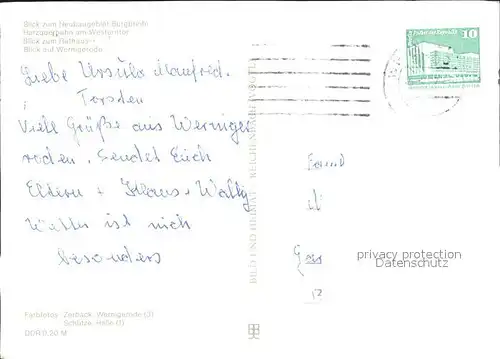 Blick zum Neubaugebiet Burgbreite
Harzquerbahn am Westerntor
Blick zum Rathaus
Blick auf Wernigerode
10
Liebe Ursula Manfred.
Torsten
Viell Grüße aus Werniger
roden. Sendet Euch
Eltern + Klaus + Wally
Wetter ist nich
besonders
BILD UND HEIMAT REICHENBACH (VOGTL)
privacy protection
Datenschutz
Farbfotos: Zorback, Wernigerode (3)
Schütze, Halle (1)
DDR 0,20 M